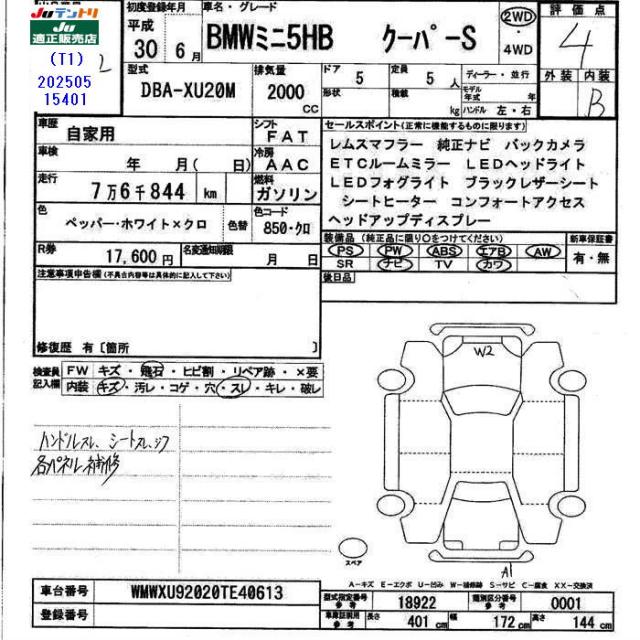 Juテントリ
Ju
適正販売店
(T1)
202505
15401
2
初度登録年月
平成
30年 6月
車名・グレード
BMWミニ5HB クーパーS
2WD
・
4WD
評価点
4
外装 内装
B
型式
DBA-XU20M
排気量
2000
CC
ドア 5
定員 5人
ディーラー・並行
形状
積載 kg
モデル年式 年
ハンドル 左・右
車歴 自家用
シフト FAT
車検 年 月( 日)
冷房 AAC
走行 7万6千844 km
燃料 ガソリン
色 ペッパー・ホワイト×クロ 色替
色コード 850・クロ
R券 17,600円
名変通知期限 月 日
セールスポイント(正常に機能するものに限ります)
レムスマフラー 純正ナビ バックカメラ
ETCルームミラー LEDヘッドライト
LEDフォグライト ブラックレザーシート
シートヒーター コンフォートアクセス
ヘッドアップディスプレー
装備品(純正品に限り○をつけてください)
PS PW ABS エアB AW
SR ナビ TV カワ
新車保証書
有・無
後日品
注意事項申告欄(不具合内容等は具体的に記入して下さい)
修復歴 有〔箇所 〕
検査員
記入欄
FW キズ・飛石・ヒビ割・リペア跡・×要
内装 キズ・汚レ・コゲ・穴・スレ・キレ・破レ
ハンドルスレ、シートスレ、シワ
各パネル補修
W2
スペア
A1
A-キズ E-エクボ U-凹み W-補修跡 S-サビ C-腐食 XX-交換済
車台番号 WMWXU92020TE40613
登録番号
型式指定番号
参考
18922
類別区分番号
参考
0001
車庫証明用
参考
長さ 401cm 幅 172cm 高さ 144cm